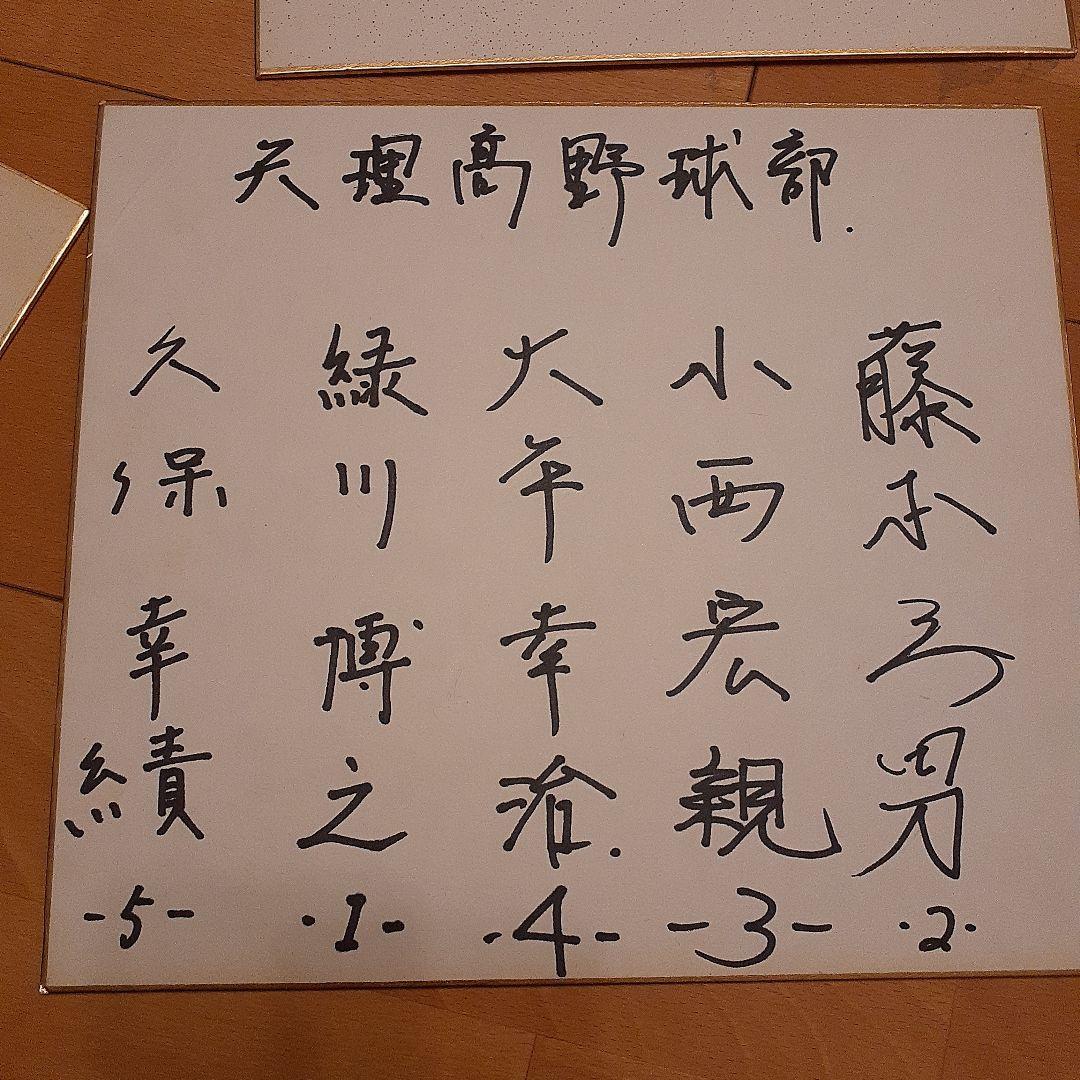 天理高野球部.
藤本三男 ・2・
小西宏親 -3-
大午幸治. ・4-
緑川博之 ・1-
久保幸績 -5-